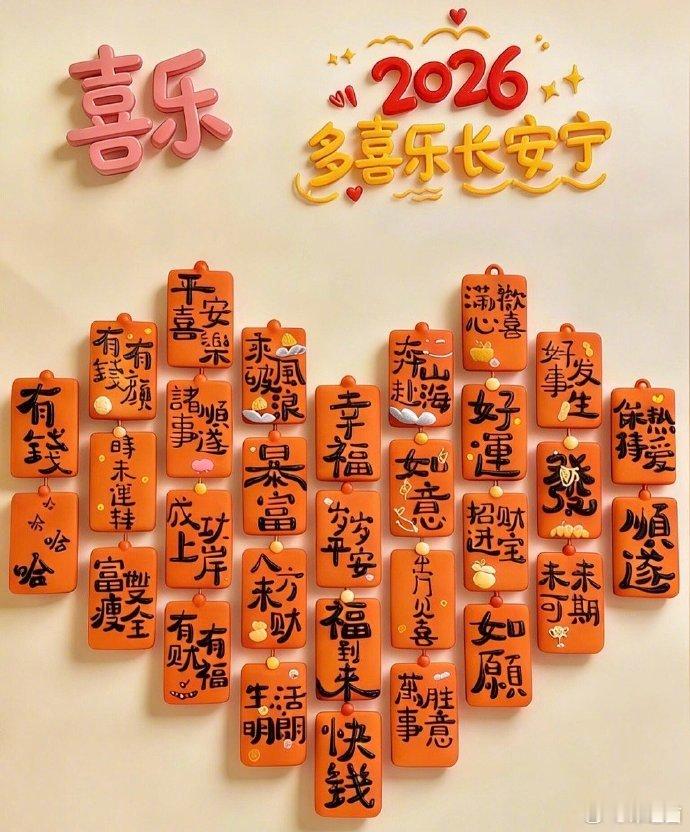 喜乐
2026
多喜乐长安宁
有錢
哈哈哈哈
有錢有顏
時来運转
富瘦雙全
平安喜樂
諸事順遂
成功上岸
有财有福
乘風破浪
暴富
八方来财
生活明朗
幸福
岁岁平安
福到来
快錢
奔赴山海
如意
萬事胜意
满心歡喜
好運
招财进宝
如願
好事发生
發
未来可期
保持热爱
順遂